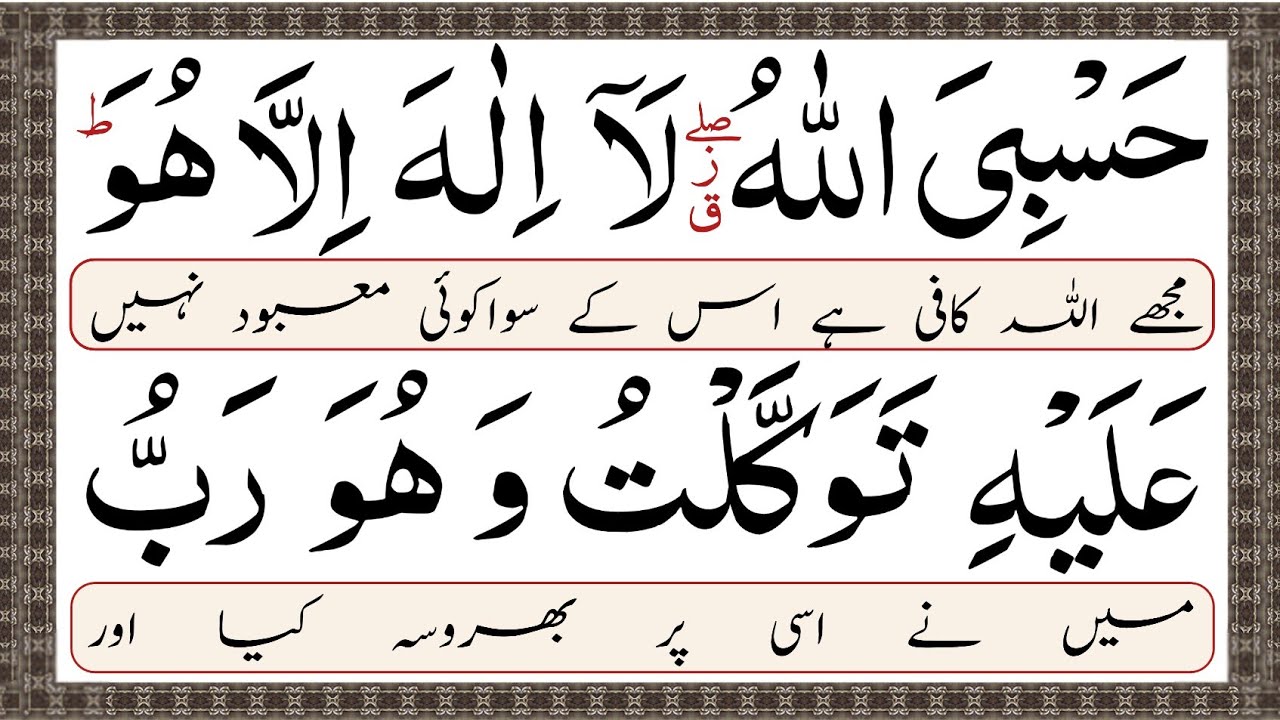 حَسْبِیَ اللّٰهُ ۖ ز ق لَاۤ اِلٰهَ اِلَّا هُوَ ؕ
مجھے اللہ کافی ہے اس کے سوا کوئی معبود نہیں
عَلَیْهِ تَوَكَّلْتُ وَ هُوَ رَبُّ
میں نے اسی پر بھروسہ کیا اور